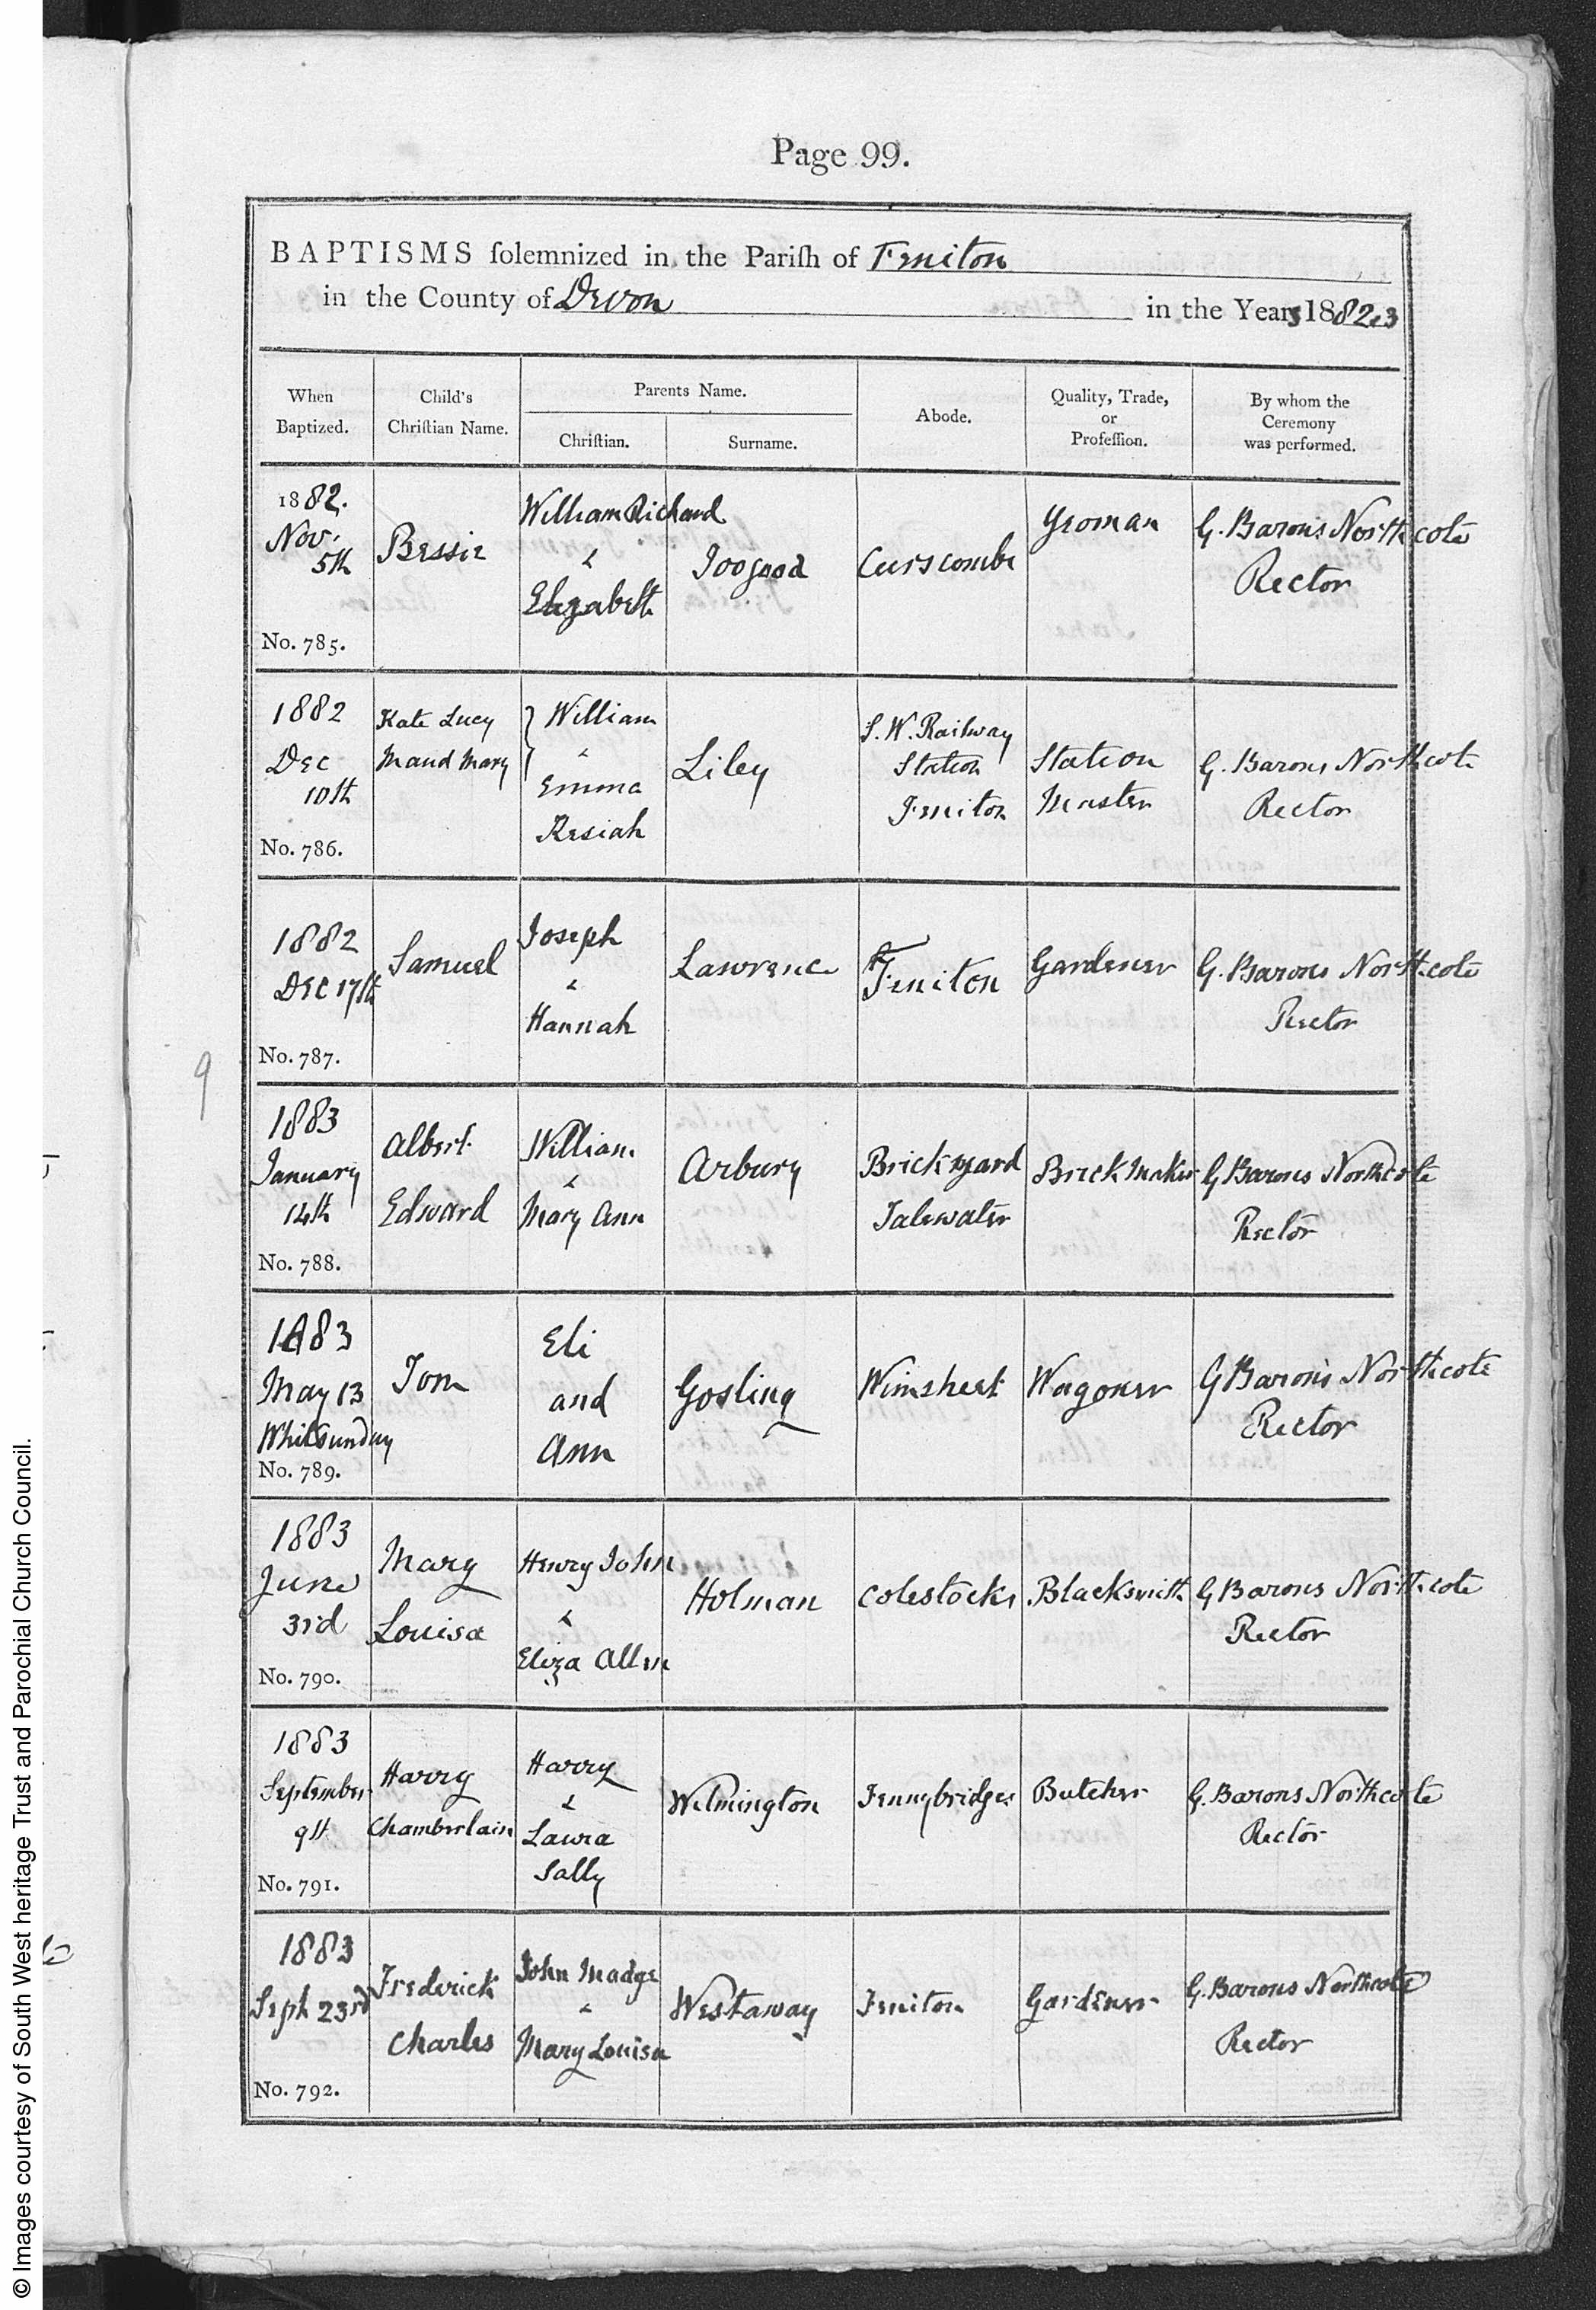 Page 99.
BAPTISMS solemnized in the Parish of Feniton
in the County of Devon in the Years 1882,3
When Baptized. Child's Christian Name. Parents Name. Christian. Surname. Abode. Quality, Trade, or Profession. By whom the Ceremony was performed.
1882.
Nov. 5th
No. 785.
Bessie
William Richard
&
Elizabeth
Toogood
Curscombe
Yeoman
G. Barons Northcote
Rector
1882
Dec
10th
No. 786.
Kate Lucy
Maud Mary
William
&
Emma
Kesiah
Liley
S. W. Railway
Station
Feniton
Station
Master
G. Barons Northcote
Rector
1882
Dec 17th
No. 787.
Samuel
Joseph
&
Hannah
Lawrence
Feniton
Gardener
G. Barons Northcote
Rector
9
1883
January
14th
No. 788.
Albert
Edward
William
&
Mary Ann
Arbury
Brickyard
Talewater
Brick Maker
G Barons Northcote
Rector
1883
May 13
Whitsunday
No. 789.
Tom
Eli
and
Ann
Gosling
Wagoner
G Barons Northcote
Rector
1883
June
3rd
No. 790.
Mary
Louisa
Henry John
&
Eliza Allen
Holman
Colestocks
Blacksmith
G Barons Northcote
Rector
1883
September
9th
No. 791.
Harry
Chamberlain
Harry
&
Laura
Sally
Wilmington
Fennybridges
Butcher
G. Barons Northcote
Rector
1883
Sept 23rd
No. 792.
Frederick
Charles
John Madge
&
Mary Louisa
Westaway
Feniton
Gardener
G. Barons Northcote
Rector
© Images courtesy of South West heritage Trust and Parochial Church Council.